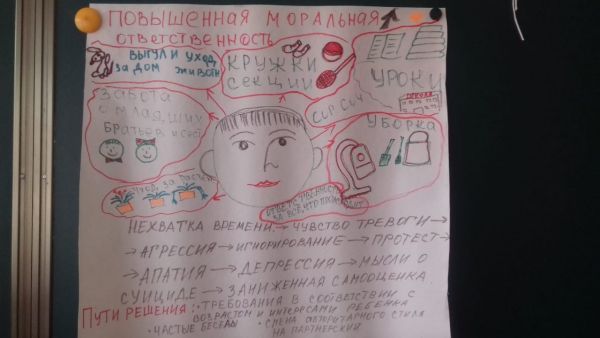 ПОВЫШЕННАЯ МОРАЛЬНАЯ
ОТВЕТСТВЕННОСТЬ
ВЫГУЛ И УХОД
ЗА ДОМ ЖИВОТН
КРУЖКИ
СЕКЦИИ
УРОКИ
ШКОЛА
ЗАБОТА
О МЛАДШИХ
БРАТЬЯХ И СЕСТ
УБОРКА
УХОД ЗА
ОТВЕТСТВЕННОСТЬ
ЗА ВСЕ, ЧТО ПРОИСХОДИТ
НЕХВАТКА ВРЕМЕНИ → ЧУВСТВО ТРЕВОГИ →
→ АГРЕССИЯ → ИГНОРИРОВАНИЕ → ПРОТЕСТ →
→ АПАТИЯ → ДЕПРЕССИЯ → МЫСЛИ О
СУИЦИДЕ → ЗАНИЖЕННАЯ САМООЦЕНКА.
ПУТИ РЕШЕНИЯ: · ТРЕБОВАНИЯ В СООТВЕТСТВИИ С
ВОЗРАСТОМ И ИНТЕРЕСАМИ РЕБЕНКА
· ЧАСТЫЕ БЕСЕДЫ · СМЕНА АВТОРИТАРНОГО СТИЛЯ
НА ПАРТНЕРСКИЙ